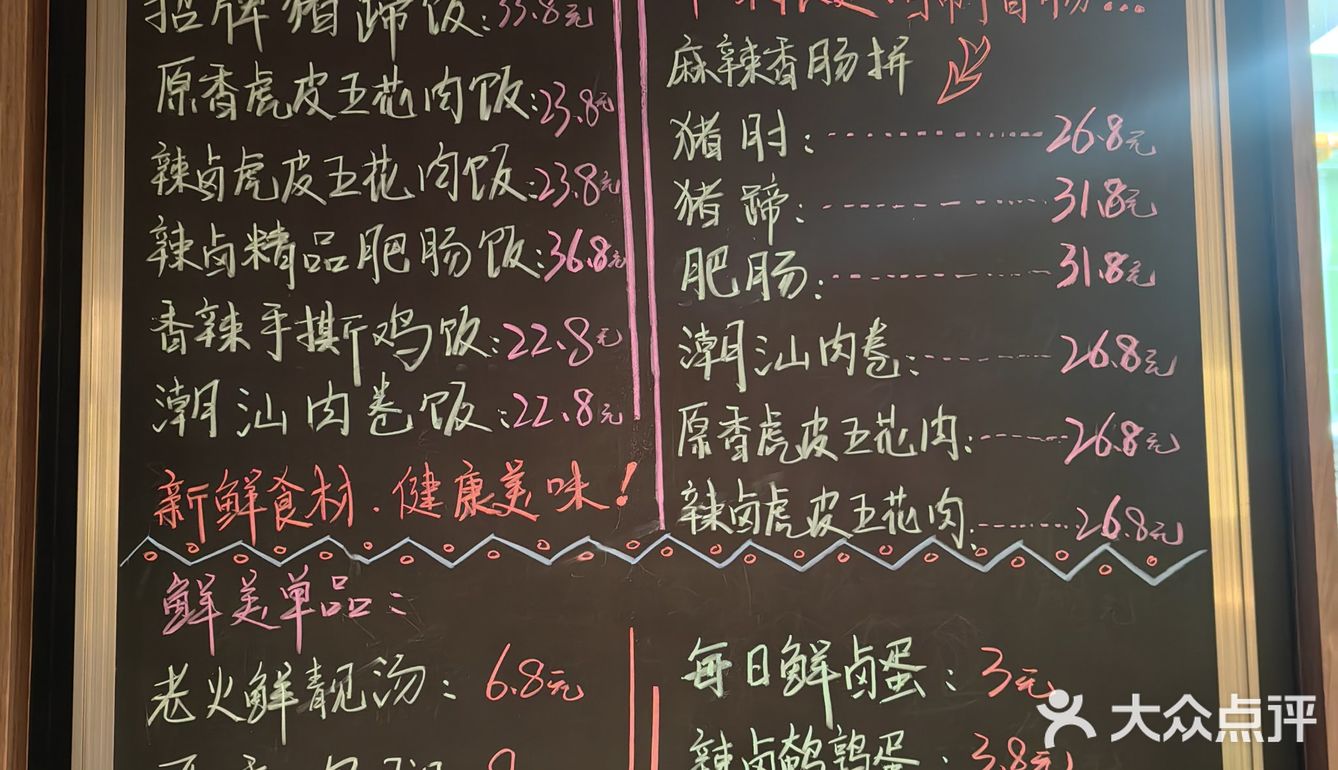 招牌猪蹄饭:33.8元
原香虎皮五花肉饭:23.8元
辣卤虎皮五花肉饭:23.8元
辣卤精品肥肠饭:36.8元
香辣手撕鸡饭:22.8元
潮汕肉卷饭:22.8元
新鲜食材.健康美味!
麻辣香肠拼
猪肘:26.8元
猪蹄:31.8元
肥肠:31.8元
潮汕肉卷:26.8元
原香虎皮五花肉:26.8元
辣卤虎皮五花肉.26.8元
鲜美单品:
老火鲜靓汤:6.8元
每日鲜卤蛋:3元
辣卤鹌鹑蛋:3.8元
大众点评